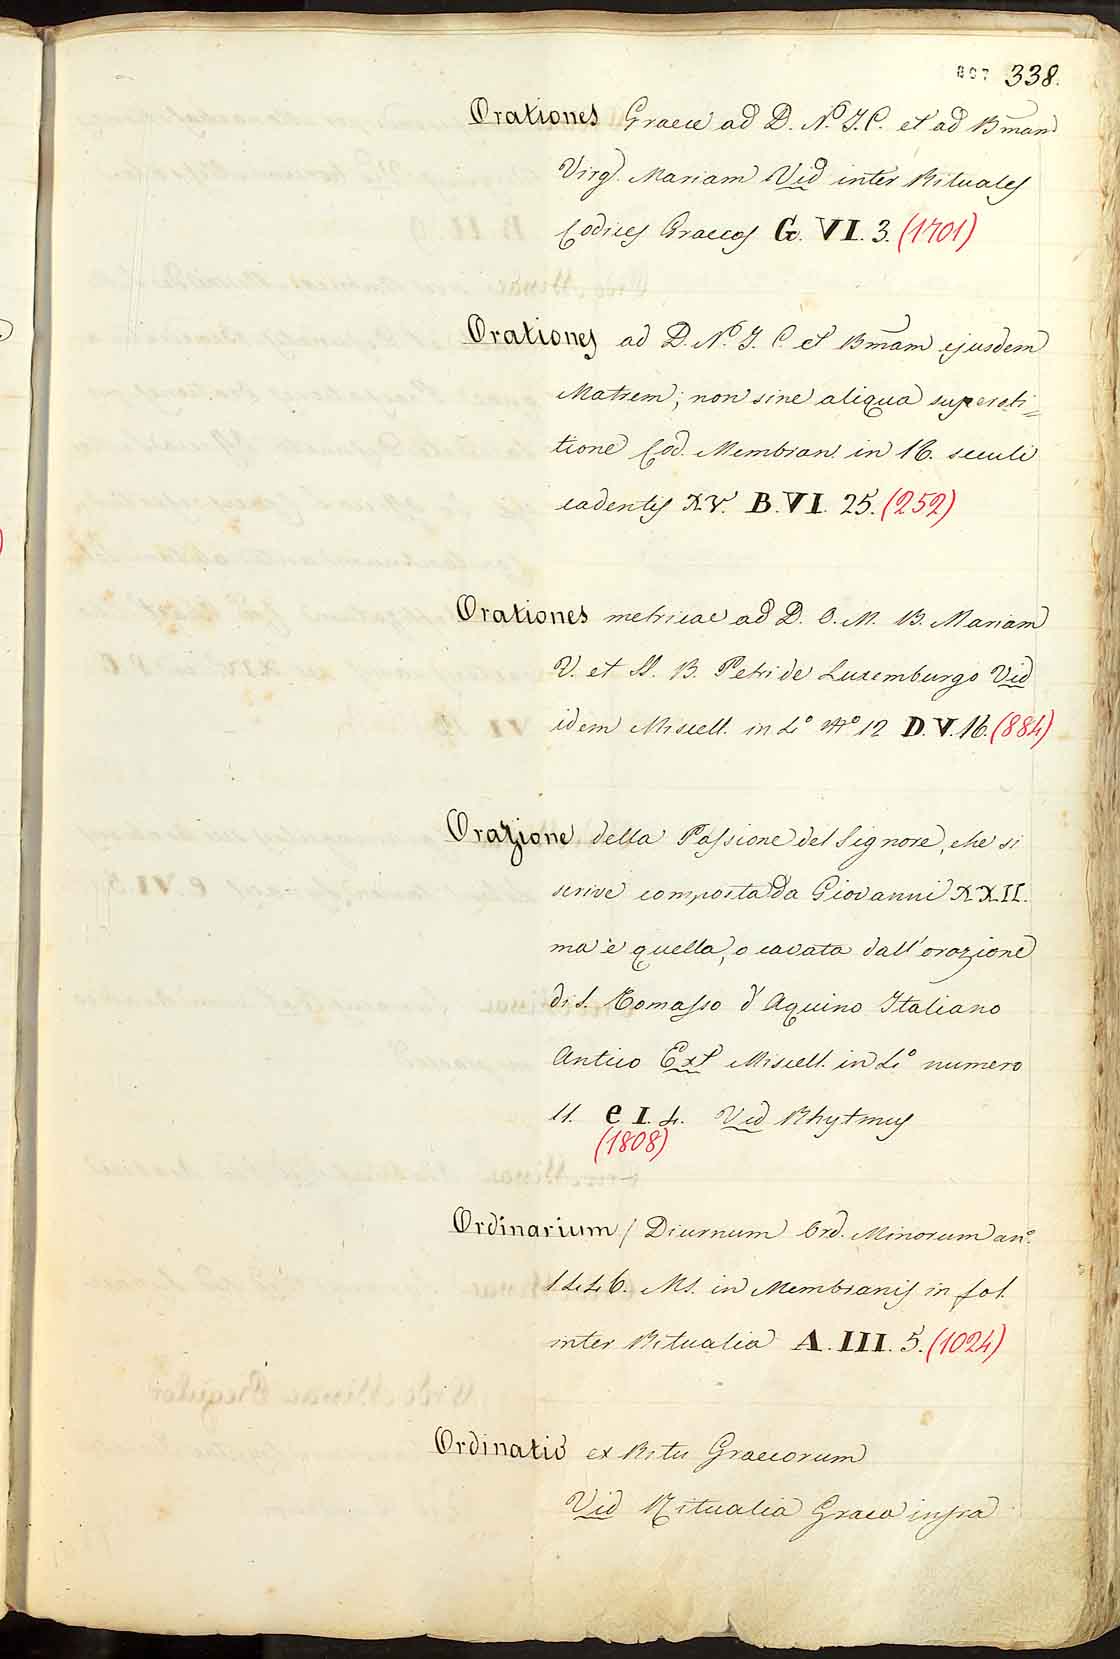 807 338.
Orationes Graece ad D. N.º J. C. et ad Bmam
Virg. Mariam Vid inter Rituales
Codices Graecos G. VI. 3. (1701)
Orationes ad D. N.º J. C. et Bmam ejusdem
Matrem; non sine aliqua supersti=
tione Cod. Membran. in 16. seculi
cadentis XV. B. VI. 25. (252)
Orationes metricae ad D. O. M. B. Mariam
V. et SS. B. Petri de Luxemburgo Vid
idem Miscell. in 4º Nº 12 D. V. 16. (884)
Orazione della Passione del Signore, che si
scrive composta da Giovanni XXII.
ma è quella, o cavata dall'orazione
di S. Tomasso d'Aquino Italiano
Antico Ext Miscell. in 4º numero
11. e I. 4. Vid Rhytmus
(1808)
Ordinarium / Diurnum Ord. Minorum anº.
1446. MS. in Membranis in fol.
inter Ritualia A. III. 5. (1024)
Ordinatio ex Ritu Graecorum
Vid Ritualia Graeca infra